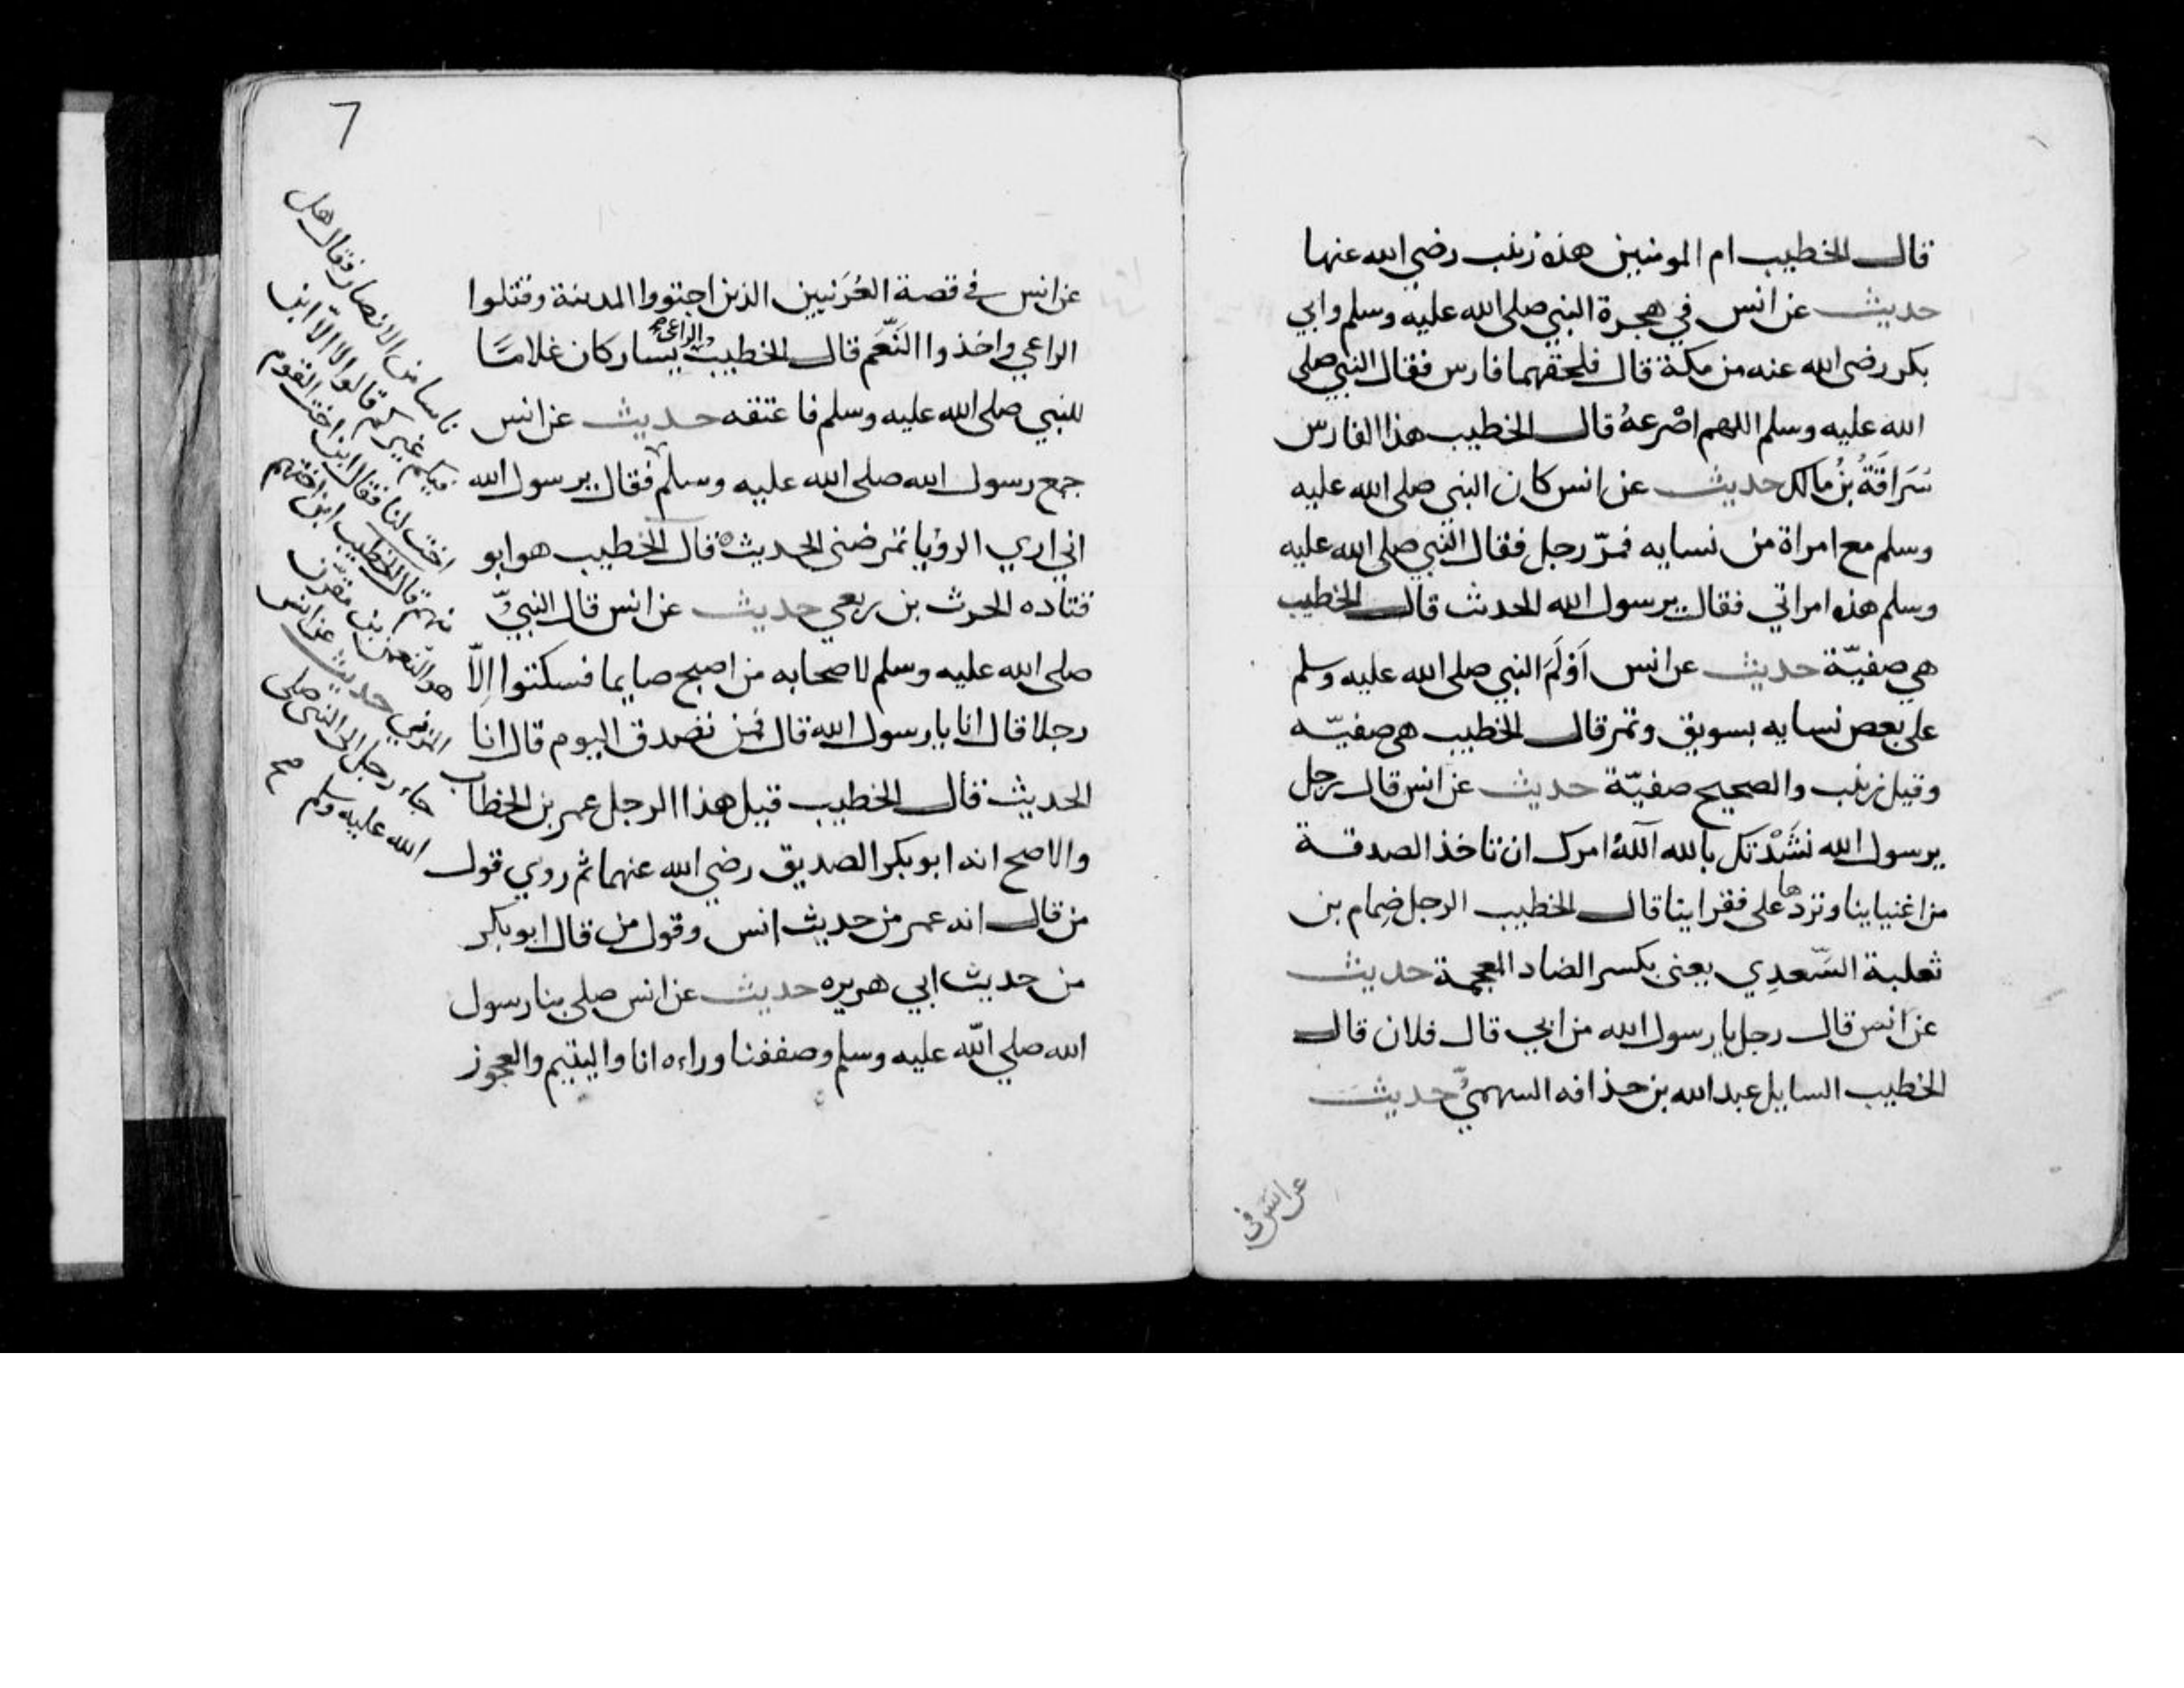 قال الخطيب ام المومنين هذه زينب رضي الله عنها
حديث عن انس في هجرة النبي صلى الله عليه وسلم وابي
بكر رضى الله عنه من مكة قال فلحقهما فارس فقال النبي صلى
الله عليه وسلم اللهم اصْرعهُ قال الخطيب هذا الفارس
سُرَاقَةُ بنُ مالك حديث عن انس كان النبي صلى الله عليه
وسلم مع امراة من نسايه فمرّ رجل فقال النبي صلى الله عليه
وسلم هذه امراتي فقال يرسول الله الحدث قال الخطيب
هي صفيّة حديث عن انس اَوْلَمَ النبي صلى الله عليه وسلم
على بعض نسايه بسويق وتمر قال الخطيب هي صفيّه
وقيل زينب والصحيح صفيّة حديث عن انس قال رجل
يرسول الله نَشَدْتك بالله آللهُ امرك ان تاخذ الصدقة
من اغنياينا وتردها على فقراينا قال الخطيب الرجل ضِمام بن
ثعلبة السَّعدِي يعنى بكسر الضاد المعجمة حديث
عن انس قال رجل يا رسول الله من ابي قال فلان قال
الخطيب السايل عبد الله بن حذافه السهميّ حديث
عن انس في
7
عن انس في قصة العُرَنيين الذين اجتووا المدينة وقتلوا
الراعي واخذوا النَّعَم قال الخطيب والراعى صح يسار كان غلامًا
للنبي صلى الله عليه وسلم فاعتقه حديث عن انس
جمع رسول الله صلى الله عليه وسلم فقال يرسول الله
اني اري الرؤيا تمرضني الحديث قال الخطيب هو ابو
قتاده الحرث بن ربعي حديث عن انس قال النبيّ
صلى الله عليه وسلم لاصحابه من اصبح صايما فسكتوا اِلاّ
رجلا قال انا يا رسول الله قال فمن تصدق اليوم قال انا
الحديث قال الخطيب قيل هذا الرجل عمر بن الخطاب
والاصح انه ابو بكر الصديق رضي الله عنهما ثم روي قول
من قال انه عمر من حديث انس وقول من قال ابو بكر
من حديث ابي هريره حديث عن انس صلى بنا رسول
الله صلي الله عليه وسلم وصففنا وراءه انا واليتيم والعجوز
ناسا من الانصار فقال هل
فيكم غيركم قالوا لا الاّ ابن
اخت لنا فقال ابن اخت القوم
منهم قال الخطيب ابن اختهم
هو النّعمن بن مقرّن
المزني حديث عن انس
جاء رجل الى النبى صلى
الله عليه وسلم صح